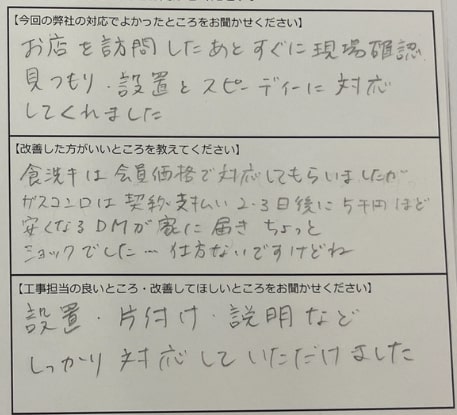 【今回の弊社の対応でよかったところをお聞かせください】
お店を訪問したあとすぐに現場確認
見つもり・設置とスピーディーに対応
してくれました
【改善した方がいいところを教えてください】
食洗キは会員価格で対応してもらいましたが
ガスコンロは契約・支払い2・3日後に5千円ほど
安くなるDMが家に届きちょっと
ショックでした… 仕方ないですけどね
【工事担当の良いところ・改善してほしいところをお聞かせください】
設置・片付け・説明など
しっかり対応していただけました